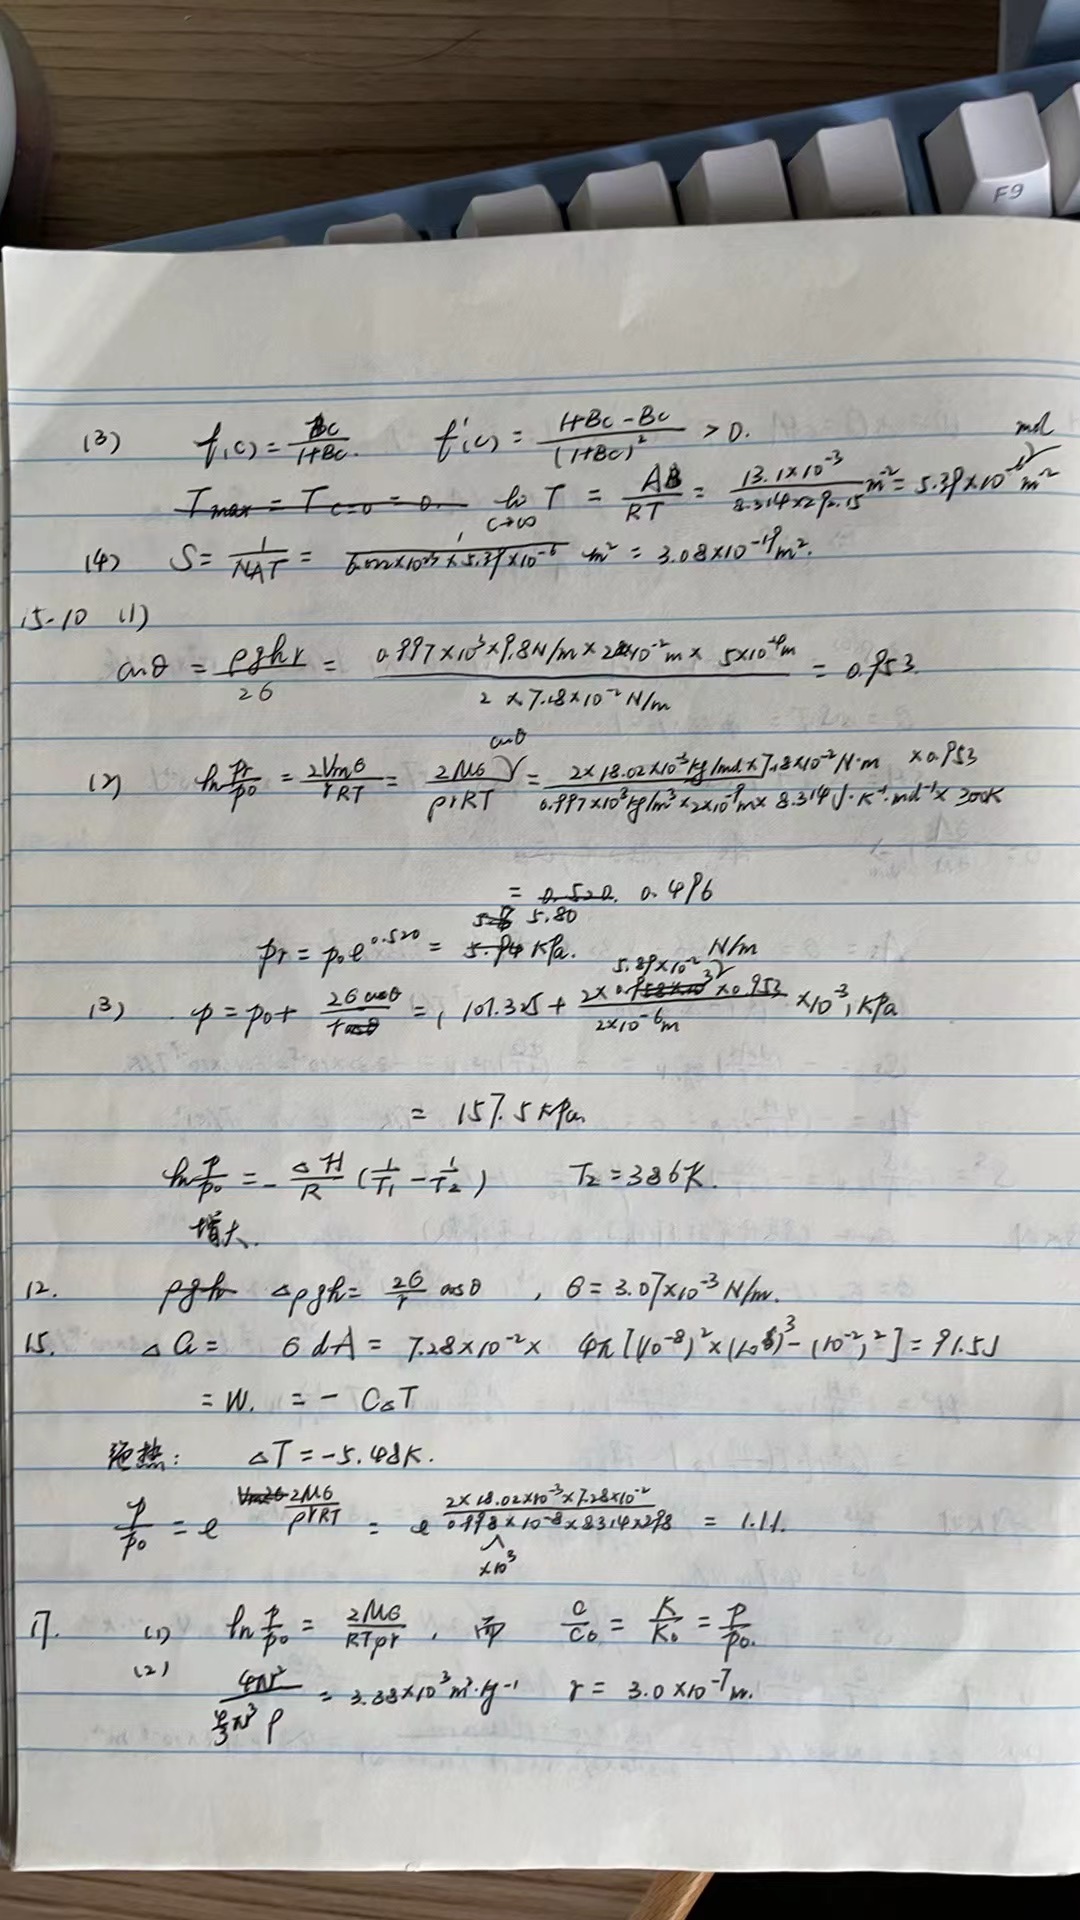 F9
(3) f(c) = Bc/(1+Bc). f'(c) = (1+Bc-Bc)/(1+Bc)² > 0.
Tmax = T c=0 = 0. lim c→∞ T = AB/RT = 13.1×10⁻³/(8.314×292.15) m⁻² = 5.39×10⁻⁶ mol m⁻²
(4) S = 1/(NAT) = 1/(6.022×10²³×5.39×10⁻⁶) m² = 3.08×10⁻¹⁹ m².
15-10 (1)
cosθ = ρghr/2σ = (0.997×10³×9.8N/m×2×10⁻²m×5×10⁻⁴m)/(2×7.18×10⁻²N/m) = 0.953.
(2) ln pr/p₀ = 2Vmσ/rRT = 2Mσ cosθ/ρrRT = (2×18.02×10⁻³kg/mol×7.18×10⁻²N·m×0.953)/(0.997×10³kg/m³×2×10⁻⁹m×8.314J·K⁻¹·mol⁻¹×300K)
= 0.520. 0.496
pr = p₀e^0.520 = 5.94 5.80 kPa.
(3) p = p₀ + 2σcosθ/r = (101.325 + 2×5.89×10⁻² N/m×0.953/(2×10⁻⁶m) ×10⁻³) kPa
= 157.5kPa
ln p/p₀ = -ΔH/R (1/T₁ - 1/T₂) T₂ = 386K.
增大.
12. ρgh Δρgh = 2σ/r cosθ , σ = 3.07×10⁻³ N/m.
15. ΔG = σdA = 7.28×10⁻²× 4π[(10⁻⁸)²×(10⁶)³-(10⁻²)²] = 91.5J
= W. = - CΔT
绝热: ΔT = -5.48K.
p/p₀ = e^(2Mσ/ρrRT) = e^(2×18.02×10⁻³×7.28×10⁻²/(0.998×10³×10⁻⁸×8.314×298)) = 1.11.
17. (1) ln p/p₀ = 2Mσ/RTρr , 而 c/c₀ = K/K₀ = p/p₀.
(2) 4πr²/(4/3 πr³ρ) = 3.38×10³m²·kg⁻¹ r = 3.0×10⁻⁷m.